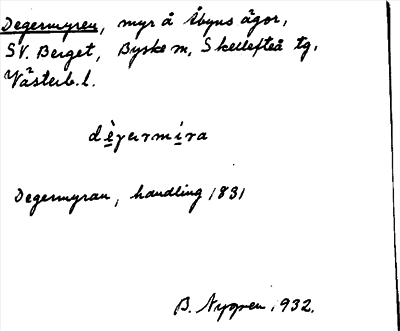 Degermyren, myr å Åbyns ägor,
SV. Berget, Byske sn, Skellefteå tg.
Västerb. l.
dègermíra
Degermyran, handling 1831
B. Nygren, 1932.